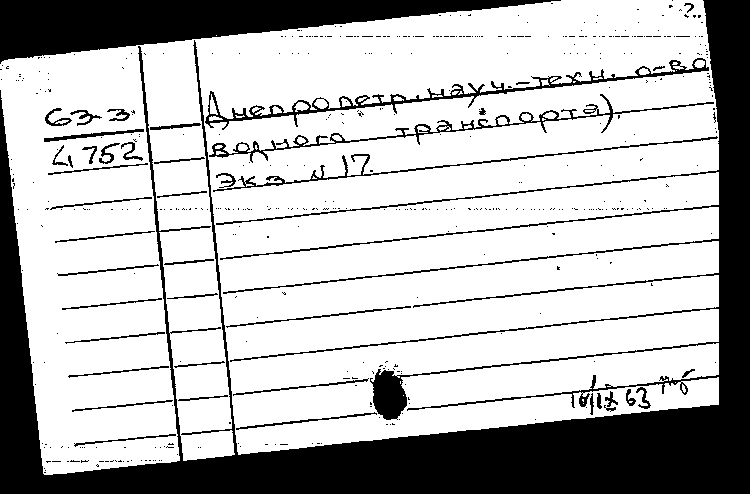 2..
63-3 Днепропетр. науч.-техн. о-во
4752 водного транспорта).
Экз. N 17.
16/IX 63